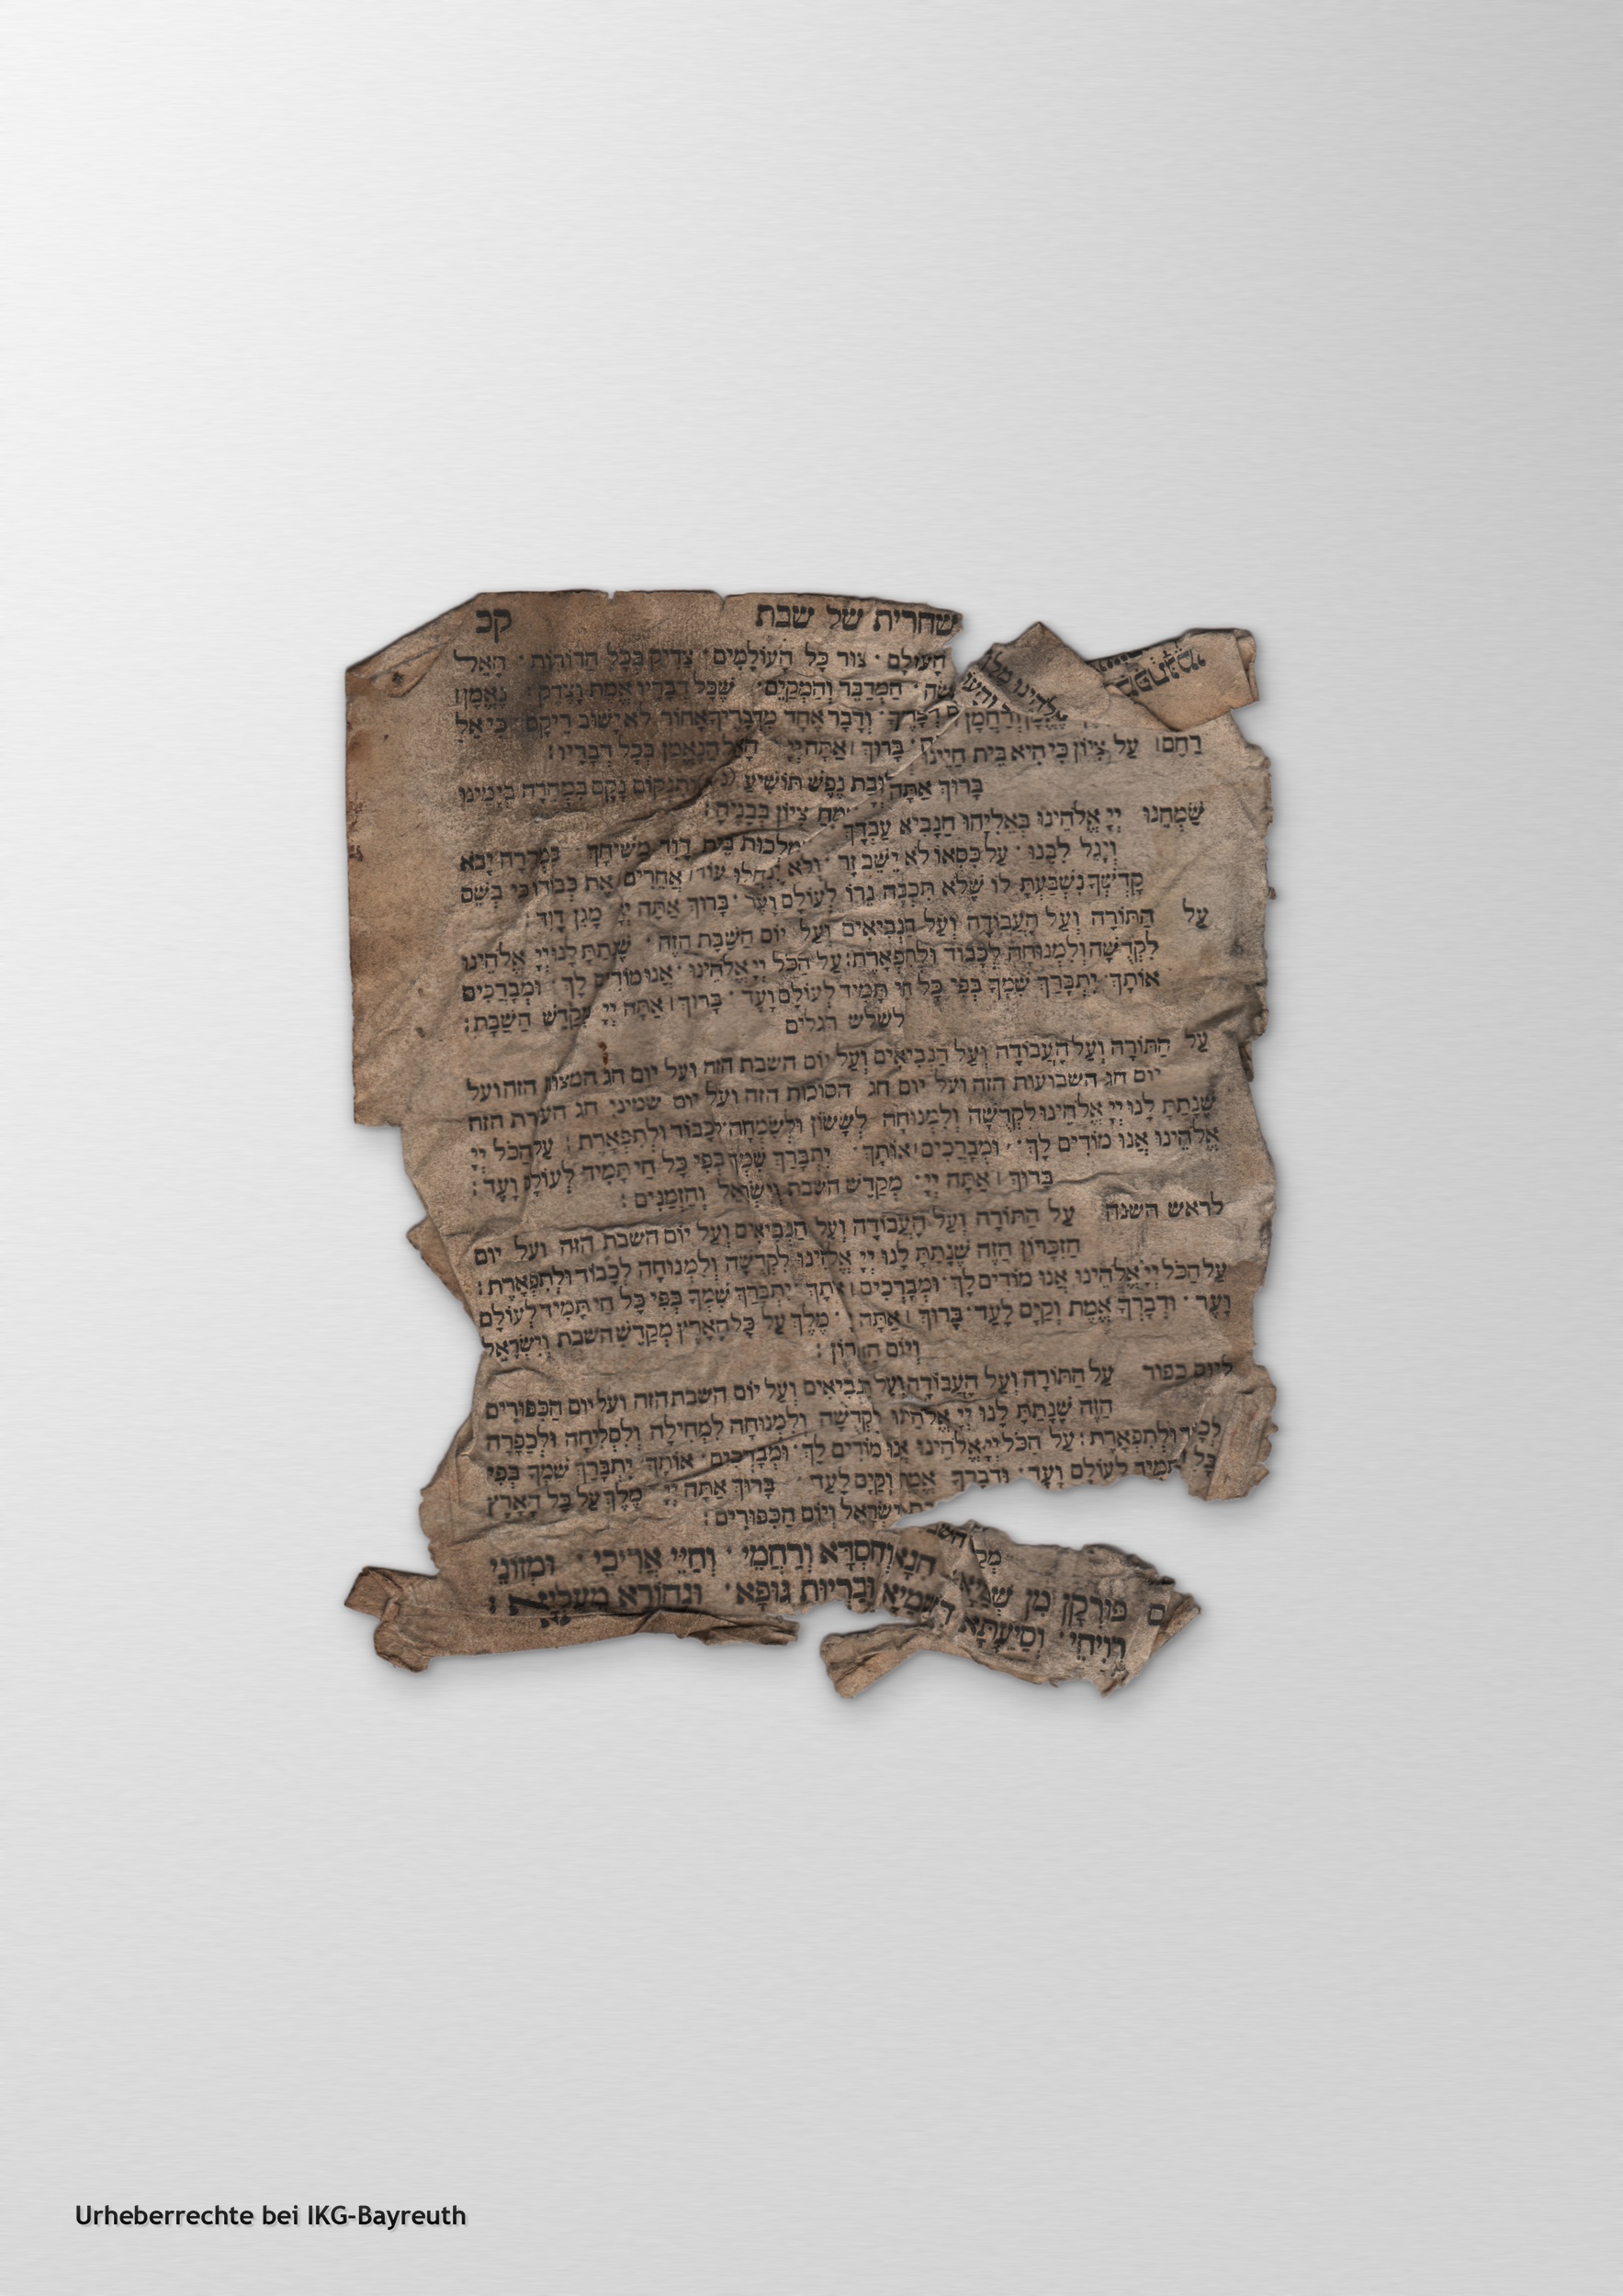 שחרית של שבת קכ
הָעוֹלָם · צוּר כָּל הָעוֹלָמִים · צַדִּיק בְּכָל הַדּוֹרוֹת · הָאֵל
הַמְדַבֵּר וּמְקַיֵּם · שֶׁכָּל דְּבָרָיו אֱמֶת וָצֶדֶק · נֶאֱמָן
דְּבָרֶיךָ · וְדָבָר אֶחָד מִדְּבָרֶיךָ אָחוֹר לֹא יָשׁוּב רֵיקָם · כִּי אֵל
וְרַחֲמָן · בָּרוּךְ אַתָּה יְיָ הָאֵל הַנֶּאֱמָן בְּכָל דְּבָרָיו :
רַחֵם עַל צִיּוֹן כִּי הִיא בֵּית חַיֵּינוּ
נֶפֶשׁ תּוֹשִׁיעַ נָקָם בִּמְהֵרָה בְיָמֵינוּ
בָּרוּךְ אַתָּה צִיּוֹן בְּבָנֶיהָ :
שַׂמְּחֵנוּ יְיָ אֱלֹהֵינוּ בְּאֵלִיָּהוּ הַנָּבִיא עַבְדֶּךָ
מַלְכוּת בֵּית דָּוִד מְשִׁיחֶךָ בִּמְהֵרָה יָבֹא
וְיָגֵל לִבֵּנוּ · עַל כִּסְאוֹ לֹא יֵשֶׁב זָר · וְלֹא יִנְחֲלוּ עוֹד אֲחֵרִים אֶת כְּבוֹדוֹ כִּי בְשֵׁם
קָדְשְׁךָ נִשְׁבַּעְתָּ לוֹ שֶׁלֹּא תִכְבֶּה נֵרוֹ לְעוֹלָם וָעֶד · בָּרוּךְ אַתָּה יְיָ מָגֵן דָּוִד :
עַל הַתּוֹרָה וְעַל הָעֲבוֹדָה וְעַל הַנְּבִיאִים וְעַל יוֹם הַשַּׁבָּת הַזֶּה · שֶׁנָּתַתָּ לָנוּ יְיָ אֱלֹהֵינוּ
לִקְדֻשָּׁה וְלִמְנוּחָה לְכָבוֹד וּלְתִפְאָרֶת : עַל הַכֹּל יְיָ אֱלֹהֵינוּ · אָנוּ מוֹדִים לָךְ · וּמְבָרְכִים
אוֹתָךְ · יִתְבָּרַךְ שִׁמְךָ בְּפִי כָּל חַי תָּמִיד לְעוֹלָם וָעֶד · בָּרוּךְ אַתָּה יְיָ מְקַדֵּשׁ הַשַּׁבָּת :
לשלש רגלים
עַל הַתּוֹרָה וְעַל הָעֲבוֹדָה וְעַל הַנְּבִיאִים וְעַל יוֹם השבת הזה ועל יום חג המצות הזה ועל
יום חג השבועות הזה ועל יום חג הסוכות הזה ועל יום שמיני חג העצרת הזה
שֶׁנָּתַתָּ לָנוּ יְיָ אֱלֹהֵינוּ לִקְדֻשָּׁה וְלִמְנוּחָה לְשָׂשׂוֹן וּלְשִׂמְחָה לְכָבוֹד וּלְתִפְאָרֶת : עַל הַכֹּל יְיָ
אֱלֹהֵינוּ אָנוּ מוֹדִים לָךְ · וּמְבָרְכִים אוֹתָךְ יִתְבָּרַךְ שִׁמְךָ בְּפִי כָּל חַי תָּמִיד לְעוֹלָם וָעֶד :
בָּרוּךְ אַתָּה יְיָ · מְקַדֵּשׁ השבת וְיִשְׂרָאֵל וְהַזְּמַנִּים :
לראש השנה עַל הַתּוֹרָה וְעַל הָעֲבוֹדָה וְעַל הַנְּבִיאִים וְעַל יוֹם השבת הזה ועל יום
הַזִּכָּרוֹן הַזֶּה שֶׁנָּתַתָּ לָנוּ יְיָ אֱלֹהֵינוּ לִקְדֻשָּׁה וְלִמְנוּחָה לְכָבוֹד וּלְתִפְאָרֶת :
עַל הַכֹּל יְיָ אֱלֹהֵינוּ אָנוּ מוֹדִים לָךְ · וּמְבָרְכִים אוֹתָךְ יִתְבָּרַךְ שִׁמְךָ בְּפִי כָּל חַי תָּמִיד לְעוֹלָם
וָעֶד · וּדְבָרְךָ אֱמֶת וְקַיָּם לָעַד · בָּרוּךְ אַתָּה מֶלֶךְ עַל כָּל הָאָרֶץ מְקַדֵּשׁ השבת וְיִשְׂרָאֵל
וְיוֹם הַזִּכָּרוֹן :
ליום כפור עַל הַתּוֹרָה וְעַל הָעֲבוֹדָה וְעַל הַנְּבִיאִים וְעַל יוֹם השבת הזה ועל יום הַכִּפּוּרִים
הַזֶּה שֶׁנָּתַתָּ לָנוּ יְיָ אֱלֹהֵינוּ לִקְדֻשָּׁה וְלִמְנוּחָה לִמְחִילָה וְלִסְלִיחָה וּלְכַפָּרָה
וּלְתִפְאָרֶת : עַל הַכֹּל יְיָ אֱלֹהֵינוּ אָנוּ מוֹדִים לָךְ · וּמְבָרְכִים · אוֹתָךְ יִתְבָּרַךְ שִׁמְךָ בְּפִי
כָּל תָּמִיד לְעוֹלָם וָעֶד · וּדְבָרְךָ אֱמֶת וְקַיָּם לָעַד בָּרוּךְ אַתָּה יְיָ מֶלֶךְ עַל כָּל הָאָרֶץ
יִשְׂרָאֵל וְיוֹם הַכִּפּוּרִים :
פּוּרְקָן מִן שְׁמַיָּא חִנָּא וְחִסְדָּא וְרַחֲמֵי · וְחַיֵּי אֲרִיכֵי · וּמְזוֹנֵי
רְוִיחֵי · וְסִיַּעְתָּא דִשְׁמַיָּא וּבַרְיוּת גּוּפָא · וּנְהוֹרָא מַעַלְיָא :
Urheberrechte bei IKG-Bayreuth